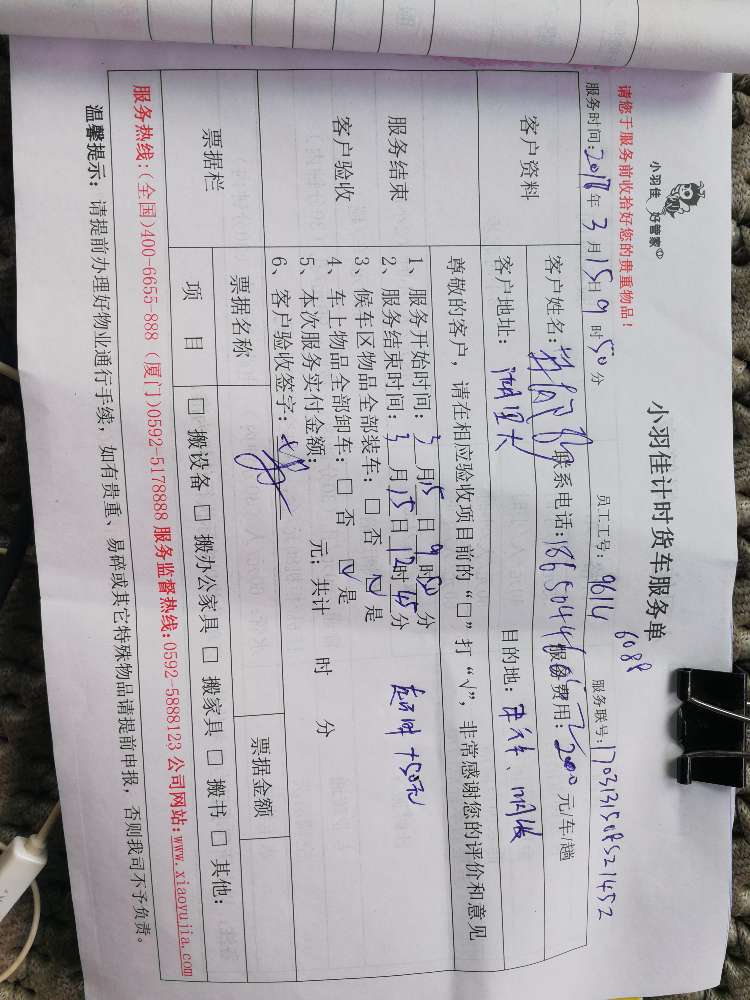 小羽佳 好管家
小羽佳计时货车服务单
请您于服务前收拾好您的贵重物品！
6088
员工工号：9614 服务联号：
服务时间：年3月15日9时50分
客户资料
客户姓名： 联系电话： 服务费用：200元/车/趟
客户地址： 目的地：
服务结束
客户验收
尊敬的客户，请在相应验收项目前的“□”打“√”，非常感谢您的评价和意见
1、服务开始时间：3月15日9时50分
2、服务结束时间：3月15日12时45分
3、候车区物品全部装车：□否 ☑是
4、车上物品全部卸车：□否 ☑是
5、本次服务实付金额： 元；共计 时 分
6、客户验收签字：
超时+50元
票据栏
票据名称 票据金额
项目 □搬设备 □搬办公家具 □搬家具 □搬书 □其他：
服务热线:(全国)400-6655-888 (厦门)0592-5178888 服务监督热线:0592-5888123 公司网站:www.xiaoyujia.com
温馨提示：请提前办理好物业通行手续，如有贵重、易碎或其它特殊物品请提前申报，否则我司不予负责。